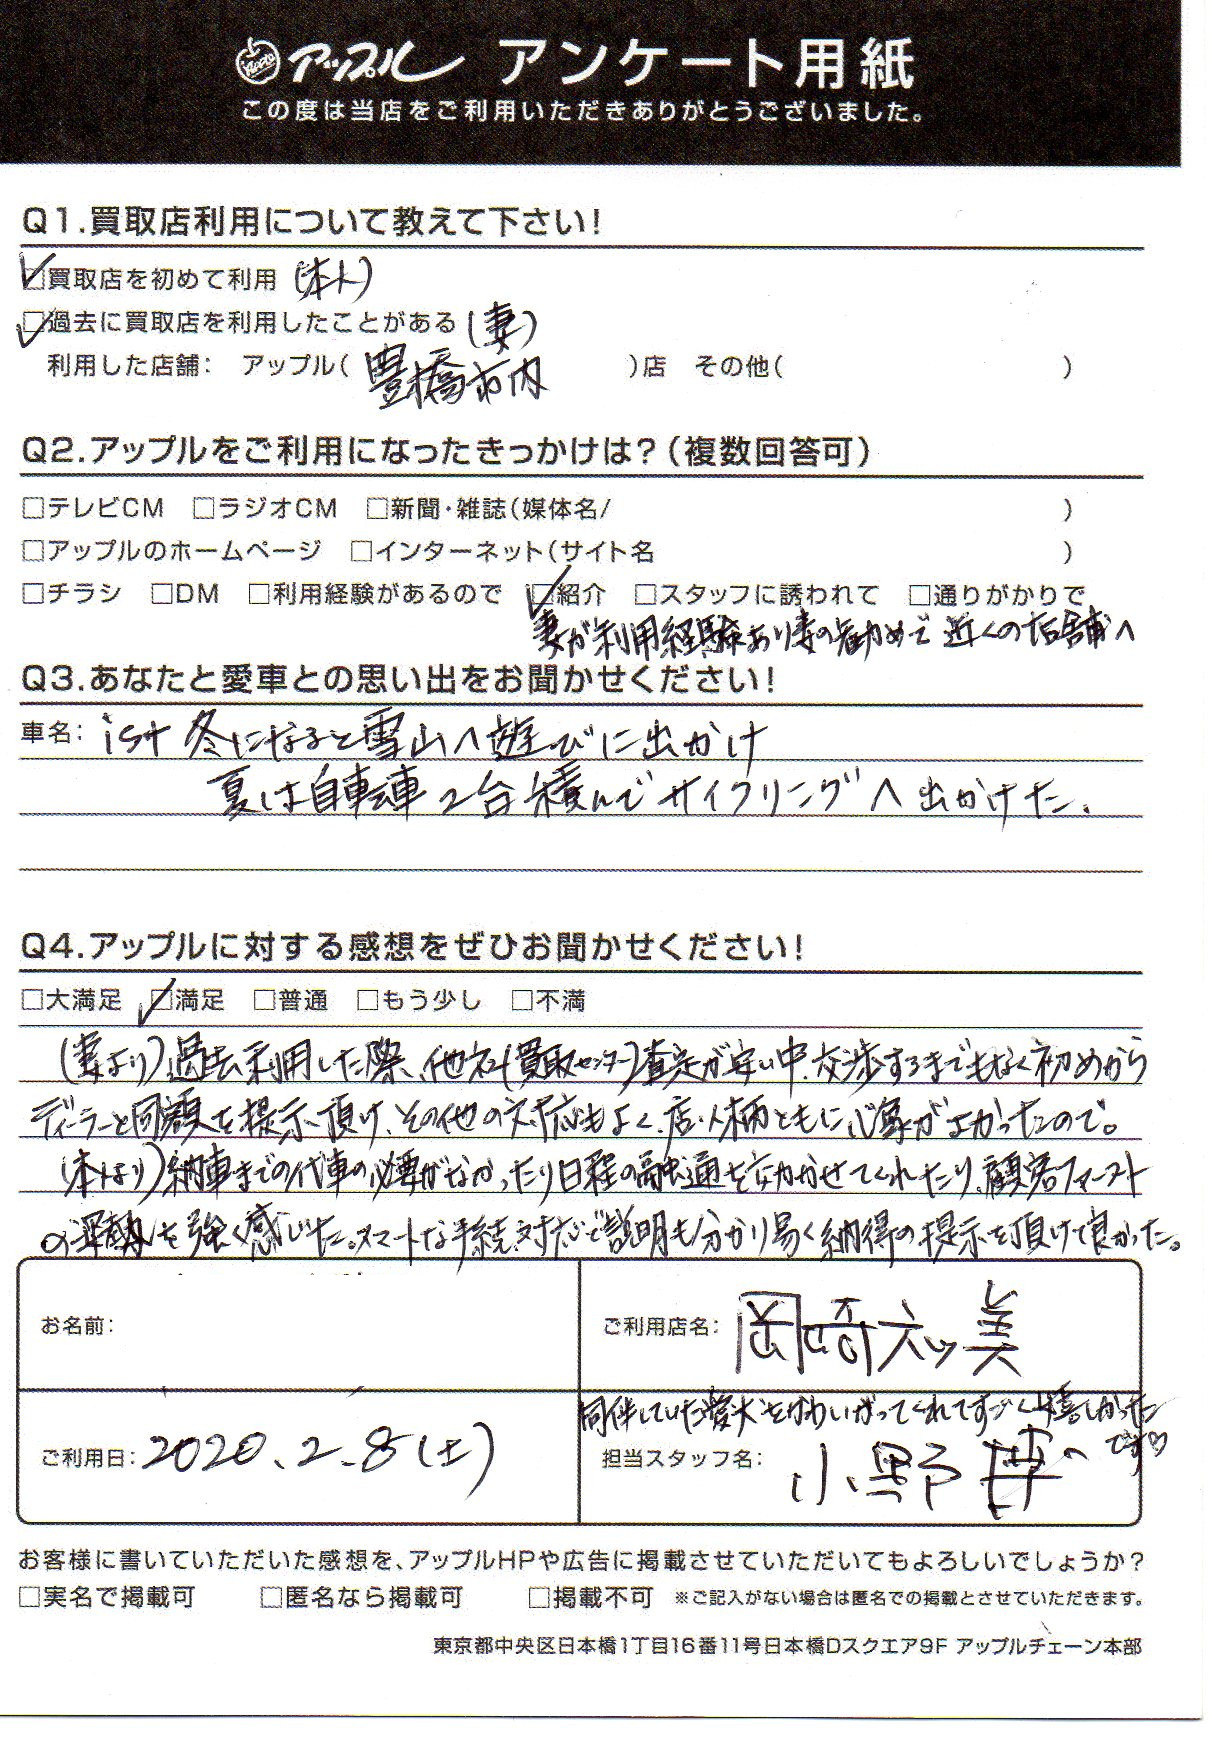 アップル アンケート用紙
この度は当店をご利用いただきありがとうございました。
Q1.買取店利用について教えて下さい!
☑買取店を初めて利用 (本人)
☑過去に買取店を利用したことがある (妻)
利用した店舗: アップル( 豊橋市内 )店 その他( )
Q2.アップルをご利用になったきっかけは?(複数回答可)
□テレビCM □ラジオCM □新聞・雑誌(媒体名/ )
□アップルのホームページ □インターネット(サイト名 )
□チラシ □DM □利用経験があるので ☑紹介 □スタッフに誘われて □通りがかりで
妻が利用経験あり妻の勧めで近くの店舗へ
Q3.あなたと愛車との思い出をお聞かせください!
車名: ist 冬になると雪山へ遊びに出かけ
夏は自転車2台積んでサイクリングへ出かけた。
Q4.アップルに対する感想をぜひお聞かせください!
□大満足 ☑満足 □普通 □もう少し □不満
(妻より)過去利用した際、他社(買取センター)査定が安い中、交渉するまでもなく初めから
ディーラーと同額を提示頂け、その他の対応もよく、店・人柄ともに心象がよかったので。
(本人より)納車までの代車の必要がなかったり日程の融通を効かせてくれたり、顧客ファースト
の姿勢を強く感じた。スマートな手続、対応で説明も分かり易く納得の提示を頂けて良かった。
お名前:
ご利用店名: 岡崎六ッ美
同伴していた愛犬をかわいがってくれてすごく嬉しかった
です♡
ご利用日: 2020.2.8(土)
担当スタッフ名: 小野
お客様に書いていただいた感想を、アップルHPや広告に掲載させていただいてもよろしいでしょうか?
□実名で掲載可 □匿名なら掲載可 □掲載不可 ※ご記入がない場合は匿名での掲載とさせていただきます。
東京都中央区日本橋1丁目16番11号日本橋Dスクエア9F アップルチェーン本部